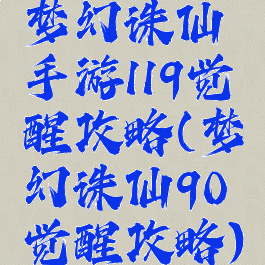 梦幻诛仙
手游119觉
醒攻略(梦
幻诛仙90
觉醒攻略)